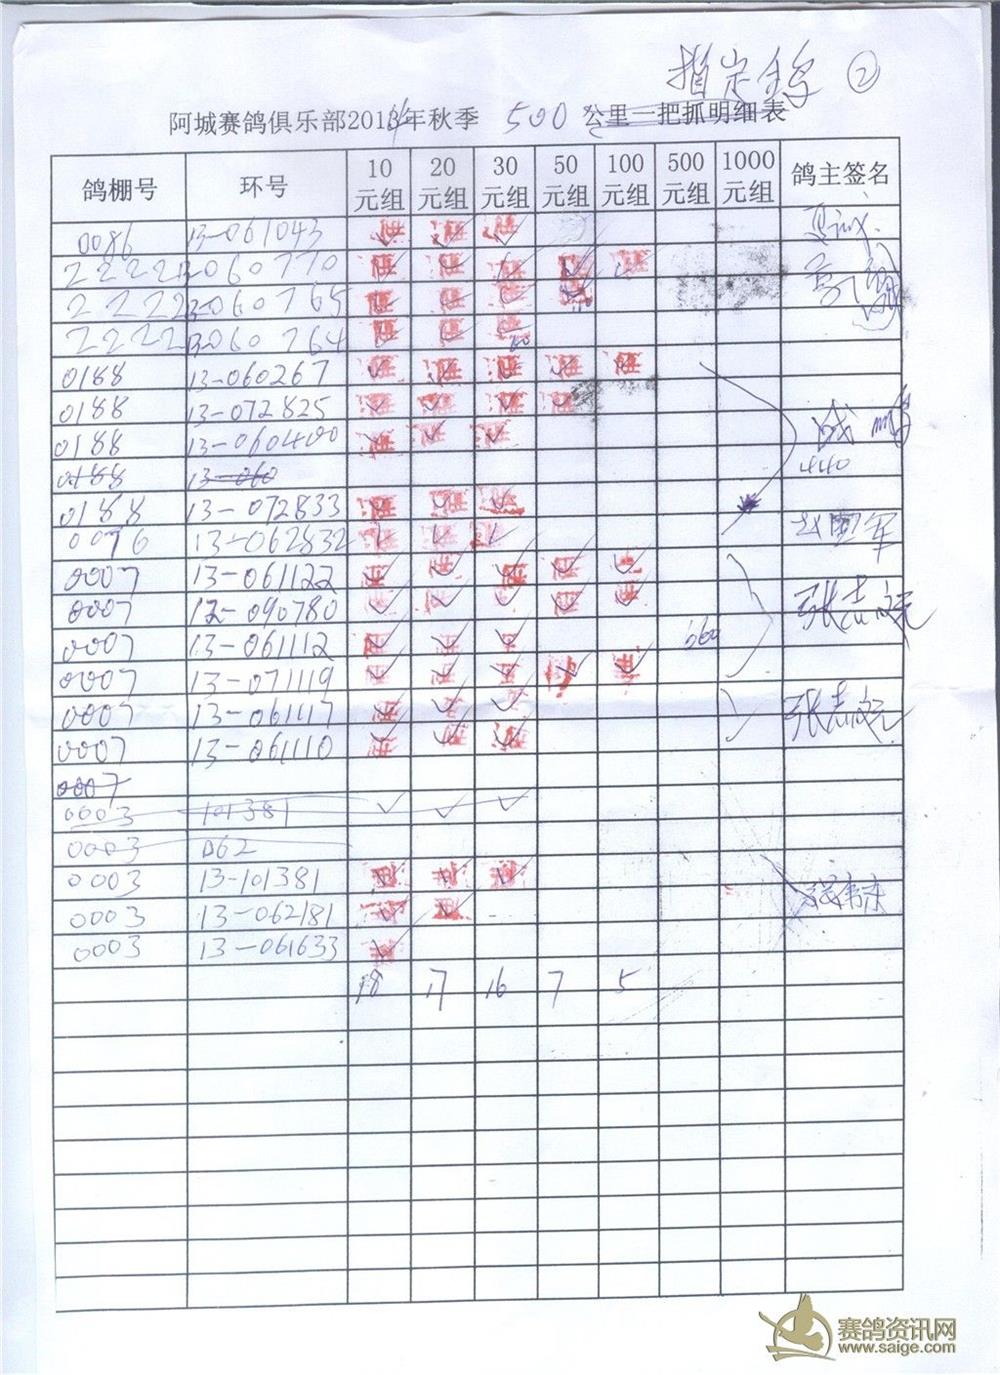 指定 ②
阿城赛鸽俱乐部2013年秋季 500 公里一把抓明细表
鸽棚号 环号 10元组 20元组 30元组 50元组 100元组 500元组 1000元组 鸽主签名
0086 13-061043
2222 13060770
2222 13060765
2222 13060764
0188 13-060267
0188 13-072825
0188 13-060400
440
0188 13-060
0188 13-072833
0076 13-062832
0007 13-061122
0007 12-090780 张志
0007 13-061112 660
0007 13-071119
0007 13-061117 张志
0007 13-061110
0007
0003 101381
0003 062
0003 13-101381
0003 13-062181
0003 13-061633
18 17 16 7 5
赛鸽资讯网
www.saige.com